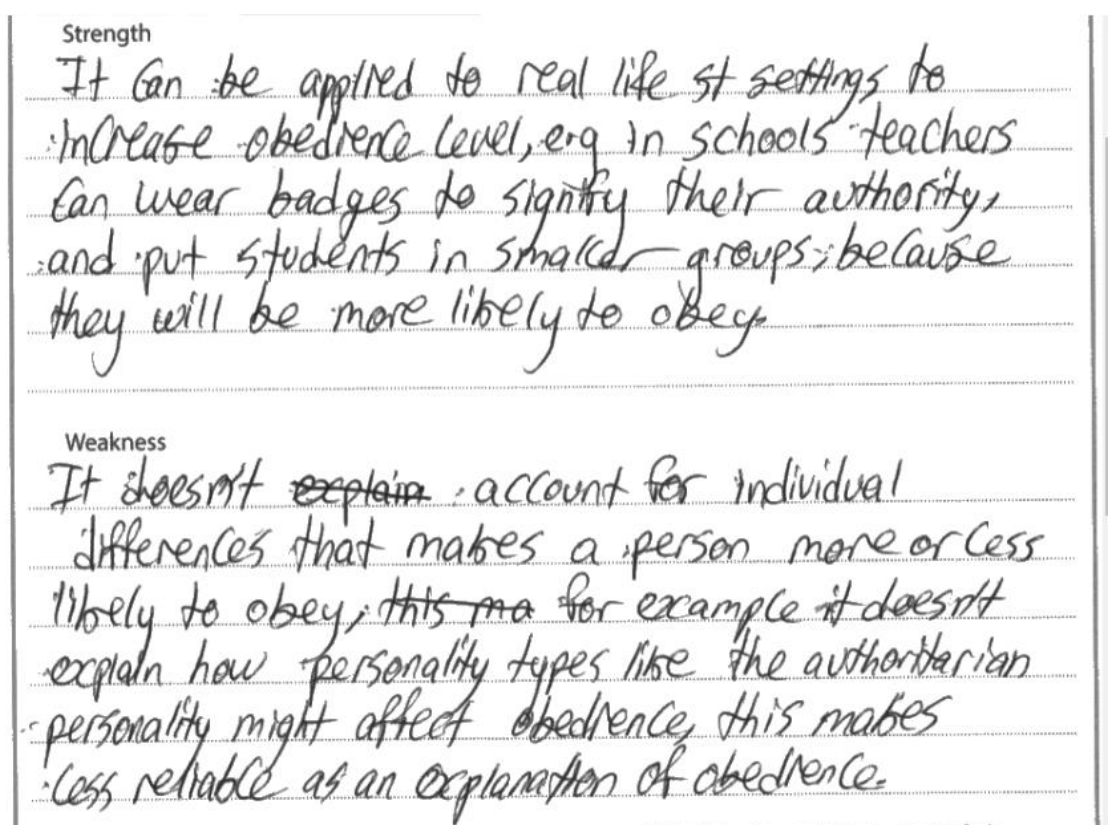 Strength
It can be applied to real life st settings to
increase obedience level, e.g in schools teachers
can wear badges to signify their authority,
and put students in smaller groups, because
they will be more likely to obey.
Weakness
It doesn't explain account for individual
differences that makes a person more or less
likely to obey, this ma for example it doesn't
explain how personality types like the authoritarian
personality might affect obedience, this makes
less reliable as an explanation of obedience.